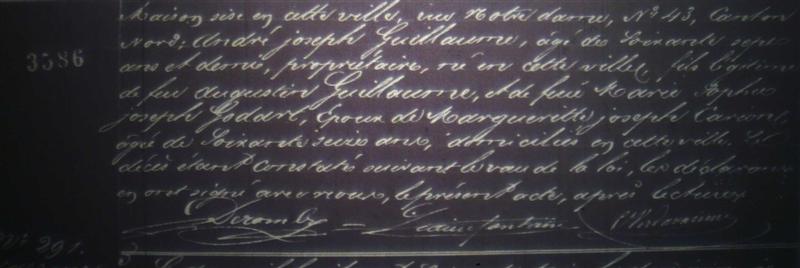 Maison sise en cette ville, rue Notre dame, N° 43, Canton
Nord; André joseph Guillaume, âgé de Soixante sept
3586
ans et demi, propriétaire, né en cette ville, fils légitime
de feu Augustin Guillaume, et de feue Marie Sophie
joseph Godart, Epoux de Marguerite joseph
âgée de Soixante seize ans, domiciliés en cette ville. Le
décès étant constaté suivant le vœu de la loi, les déclarans
en ont signé avec nous, le présent acte, après lecture
N° 291.